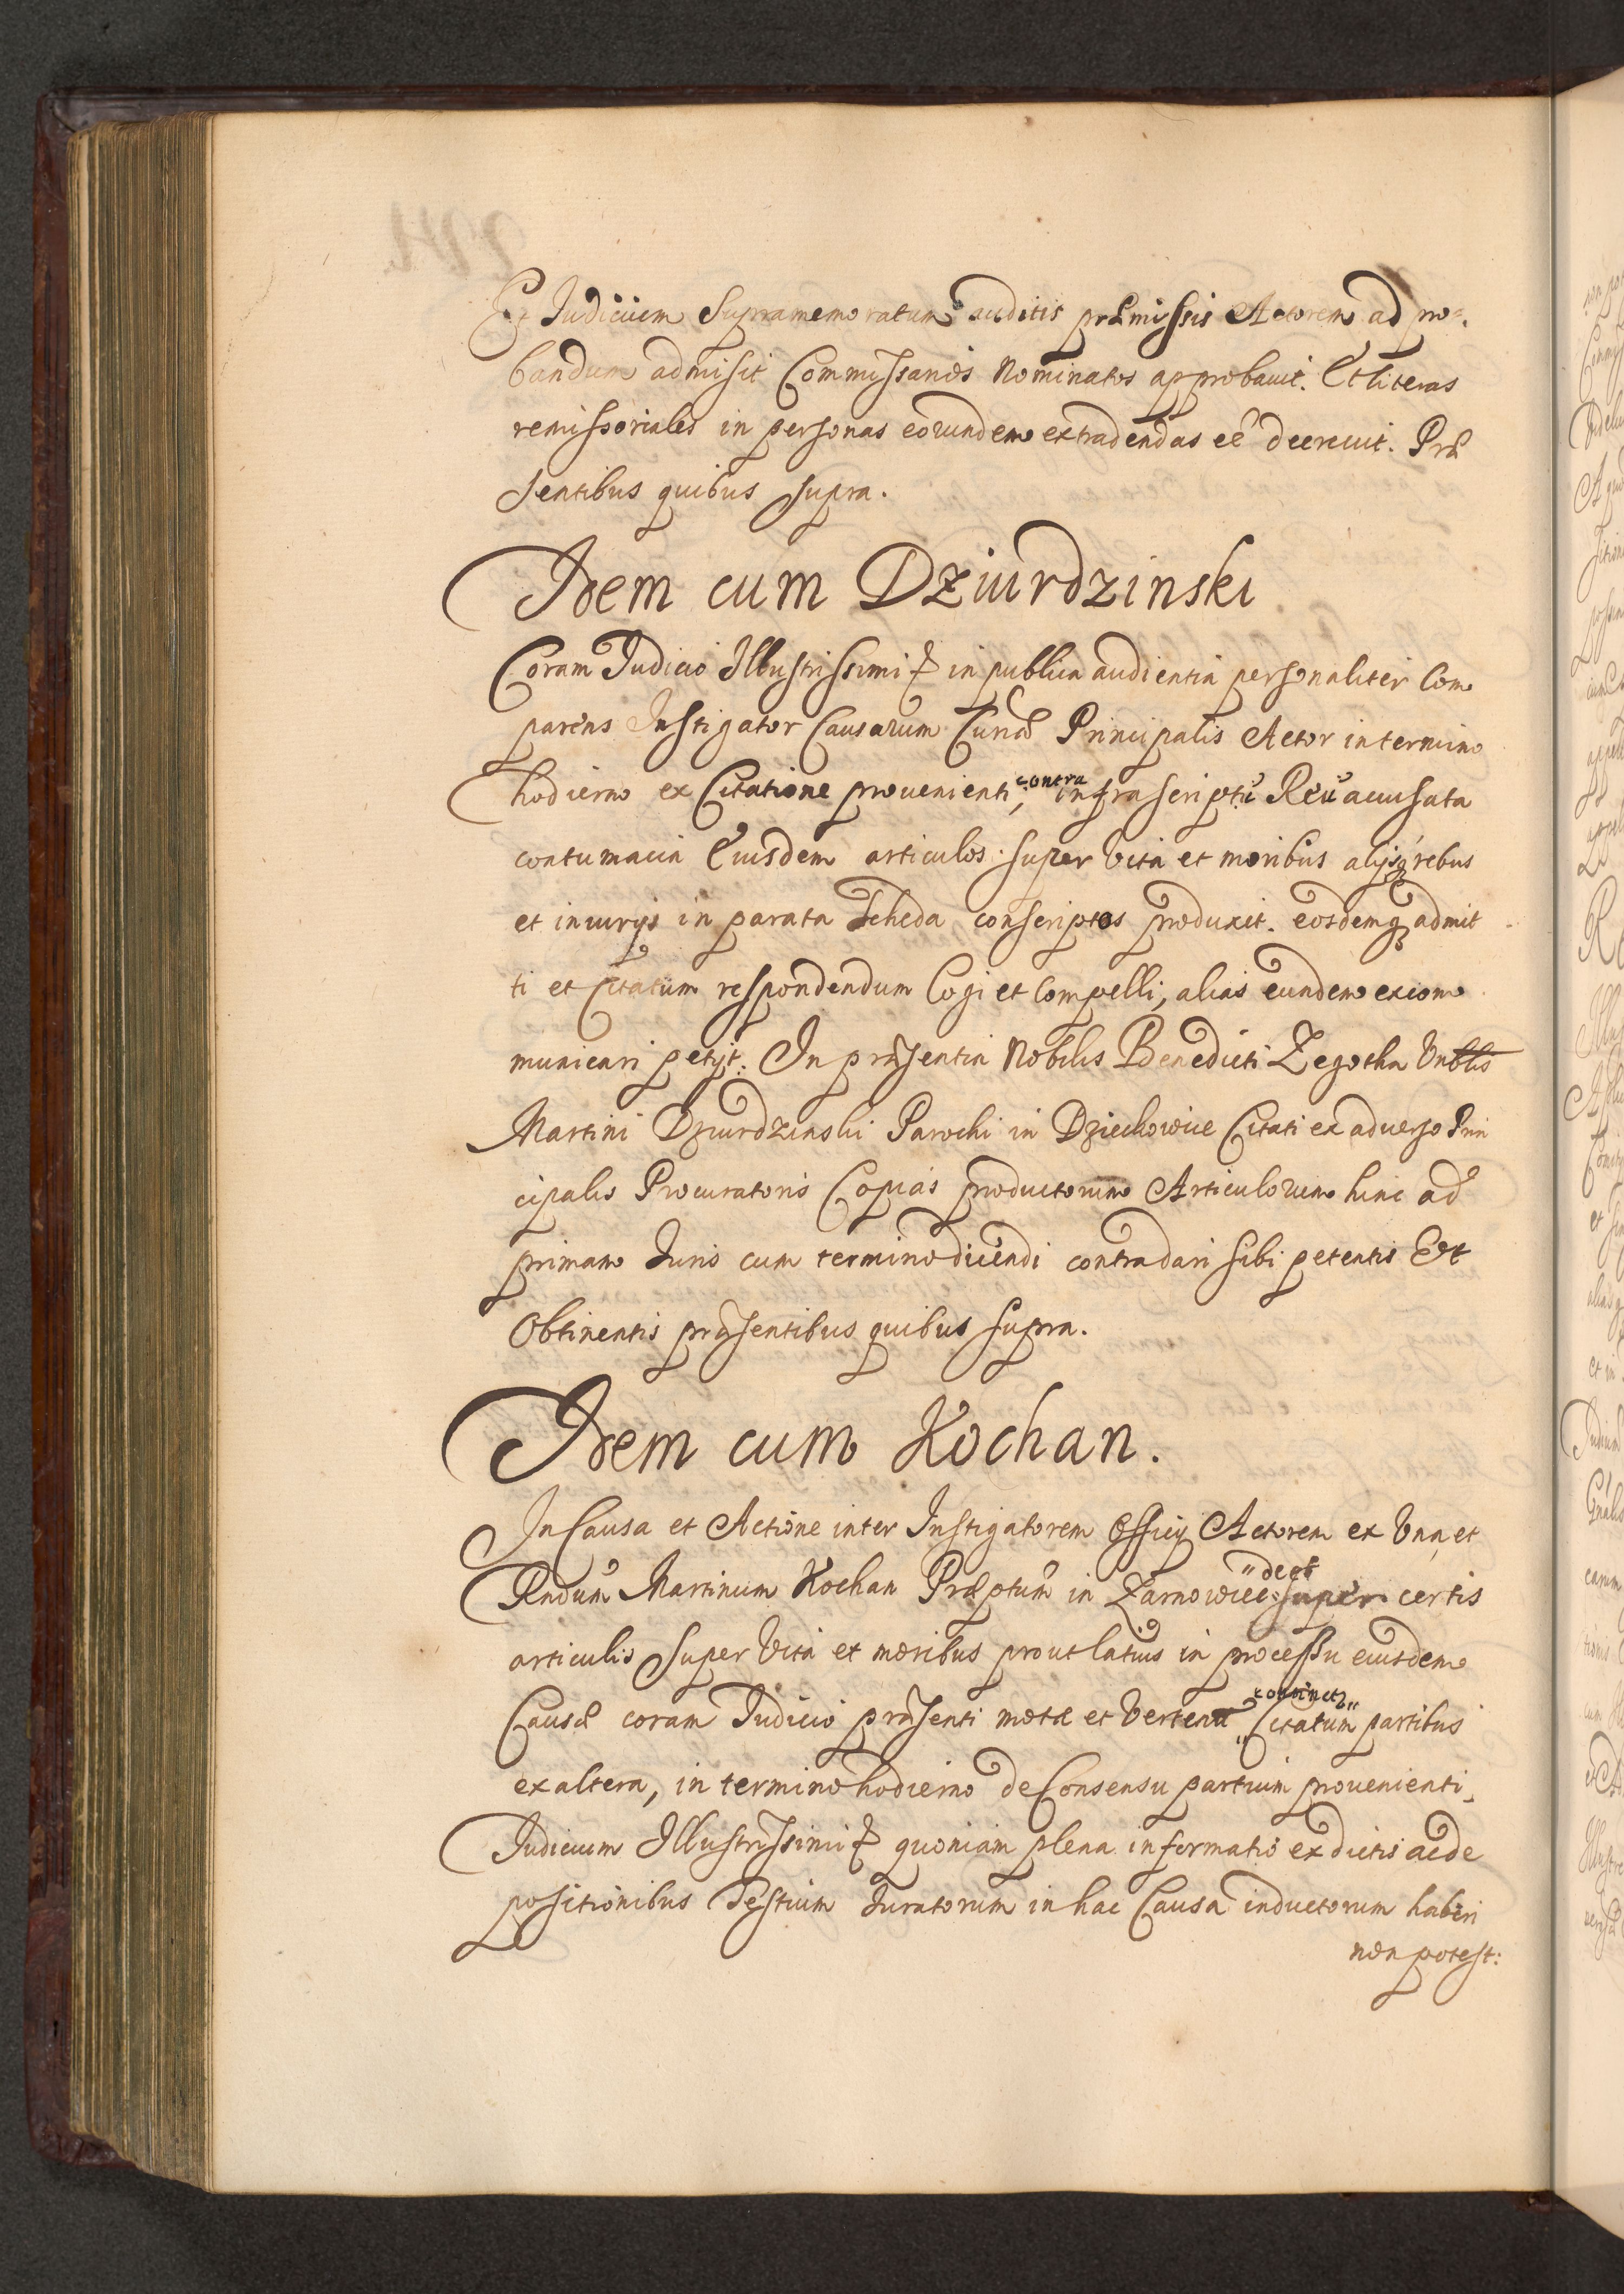 Et Judicium Supramemoratum auditis præmissis Actorem ad pro¬
bandum admisit Commissarios Nominatos approbauit. Et literas
remissoriales in personas eorundem extradendas eê decreuit. Præ
sentibus quibus supra.
Idem cum Dziurdzinski
Coram Judicio Illustrissimi & in publica audientia personaliter Com
parens Instigator Causarum Curiæ Principalis Actor in termino
hodierno ex Citatione prouenienti, contra infrascriptũ Reũ accusata
contumacia Eiusdem articulos super Vita et moribus alijsq́ rebus
et iniurijs in parata scheda conscriptos produxit. eosdemq, admit
ti et Citatum respondendum Cogi et Compelli, alias eundem excom
municari petijt. In præsentia Nobilis Benedicti Zegotha Vnblis
Martini Dziurdzinski Parochi in Dziechowice Citati ex aduerso Prin
cipalis Procuratoris Copias productorum Articulorum hinc ad
primam Juris cum termino dicendi contra dari sibi petentis Et
Obtinentis præsentibus quibus supra.
Idem cum Kochan.
In Causa et Actione inter Instigatorem Officij Actorem ex Vna, et
Rndum Martinum Kochan Præptum in Zarnowiec de et super certis
articulis super Vita et moribus prout latius in processu eiusdem
Causæ coram Judicio præsenti motæ et Verten continet Citatum partibus
ex altera, in termino hodierno de Consensu partium prouenienti,
Judicium Illustrissimi & quoniam plena informatio ex dictis ac de
positionibus Testium Juratorum in hac Causa inductorum haberi
non potest: